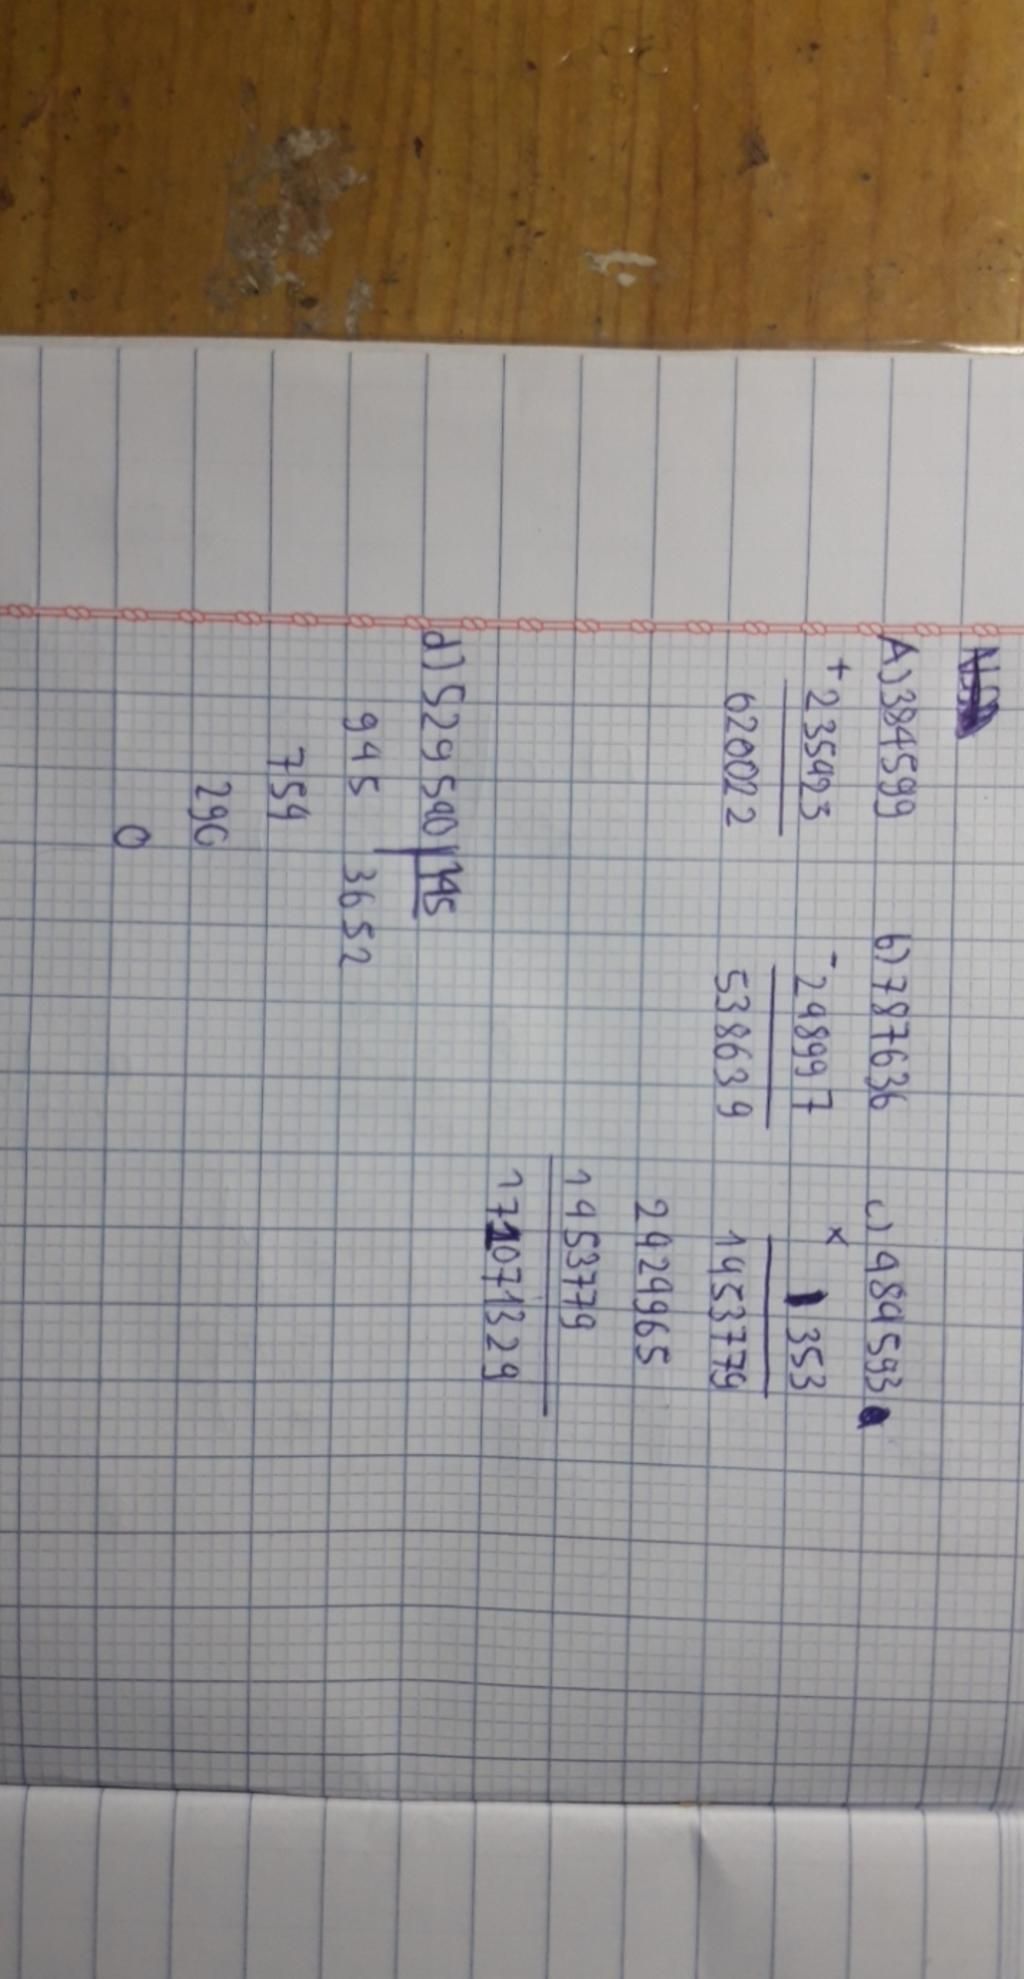 A) 384599 b) 787636 c) 484593
+ 235423 - 248997 x 353
620022 538639 1453779
2424965
1453779
171071329
d) 529540 145
945 3652
754
290
0